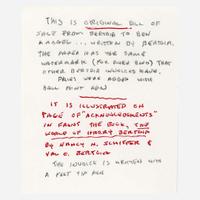 THIS IS ORIGINAL BILL OF
SALE FROM BERTOIA TO BEN
... WRITTEN BY BERTOIA.
THE PAPER HAS THE SAME
WATERMARK (FOX RIVER BOND) THAT
OTHER BERTOIA INVOICES HAVE.
PRICES WERE ADDED WITH
BALL POINT PEN
IT IS ILLUSTRATED ON
PAGE OF "ACKNOWLEDGMENTS"
IN THE BOOK, THE
WORLD OF HARRY BERTOIA
BY NANCY N. SCHIFFER &
VAL O. BERTOIA.
THE INVOICE IS WRITTEN WITH
A FELT TIP PEN